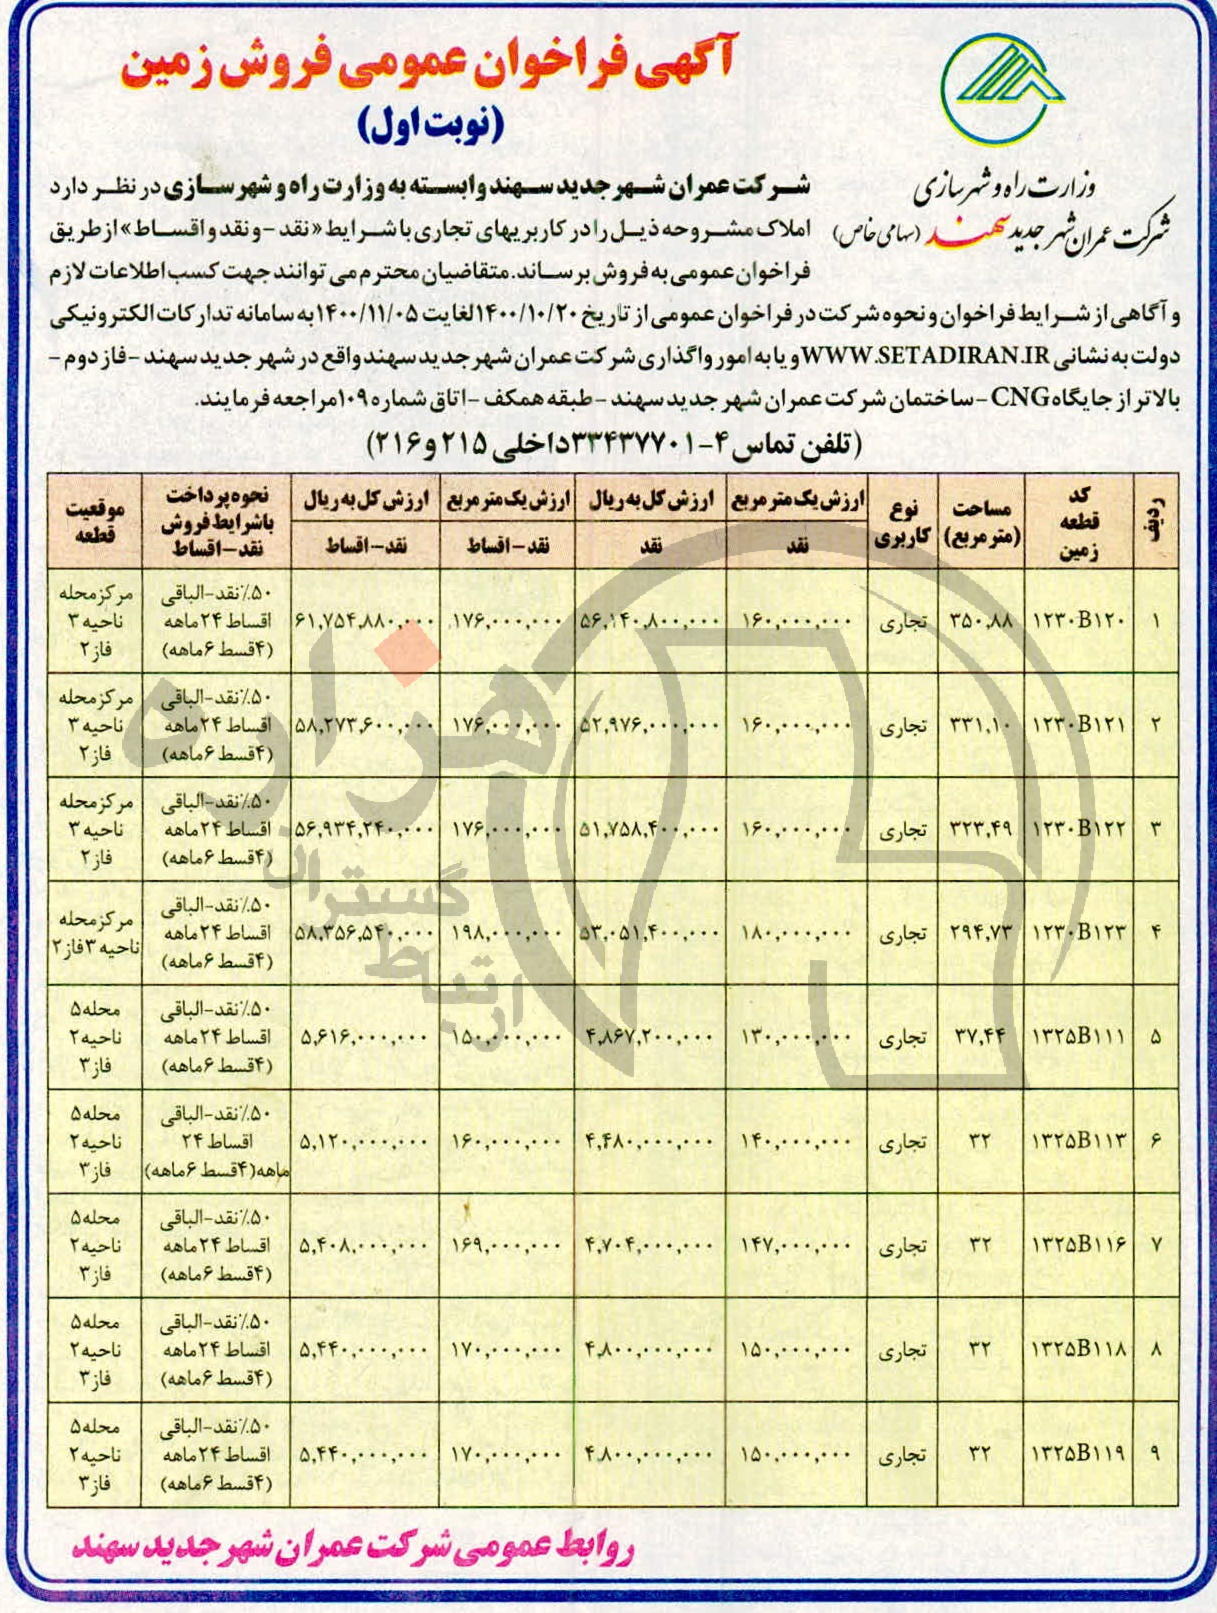 آگهی فراخوان عمومی فروش زمین
(نوبت اول)
وزارت راه و شهرسازی
شرکت عمران شهر جدید سهند (سهامی خاص)
شرکت عمران شهر جدید سهند وابسته به وزارت راه و شهرسازی در نظر دارد
املاک مشروحه ذیل را در کاربریهای تجاری با شرایط «نقد -و نقد و اقساط» از طریق
فراخوان عمومی به فروش برساند. متقاضیان محترم می توانند جهت کسب اطلاعات لازم
و آگاهی از شرایط فراخوان و نحوه شرکت در فراخوان عمومی از تاریخ ۱۴۰۰/۱۰/۲۰ لغایت ۱۴۰۰/۱۱/۰۵ به سامانه تدارکات الکترونیکی
دولت به نشانی WWW.SETADIRAN.IR و یا به امور واگذاری شرکت عمران شهر جدید سهند واقع در شهر جدید سهند - فاز دوم -
بالاتر از جایگاه CNG - ساختمان شرکت عمران شهر جدید سهند - طبقه همکف - اتاق شماره ۱۰۹ مراجعه فرمایند.
(تلفن تماس ۴-۳۳۴۳۷۷۰۱ داخلی ۲۱۵ و ۲۱۶)
ردیف | کد قطعه زمین | مساحت (متر مربع) | نوع کاربری | ارزش یک متر مربع نقد | ارزش کل به ریال نقد | ارزش یک متر مربع نقد - اقساط | ارزش کل به ریال نقد - اقساط | نحوه پرداخت با شرایط فروش نقد - اقساط | موقعیت قطعه
۱ | ۱۲۳۰B۱۲۰ | ۳۵۰,۸۸ | تجاری | ۱۶۰,۰۰۰,۰۰۰ | ۵۶,۱۴۰,۸۰۰,۰۰۰ | ۱۷۶,۰۰۰,۰۰۰ | ۶۱,۷۵۴,۸۸۰,۰۰۰ | ۵۰٪ نقد - الباقی اقساط ۲۴ ماهه (۴ قسط ۶ ماهه) | مرکز محله ناحیه ۳ فاز ۲
۲ | ۱۲۳۰B۱۲۱ | ۳۳۱,۱۰ | تجاری | ۱۶۰,۰۰۰,۰۰۰ | ۵۲,۹۷۶,۰۰۰,۰۰۰ | ۱۷۶,۰۰۰,۰۰۰ | ۵۸,۲۷۳,۶۰۰,۰۰۰ | ۵۰٪ نقد - الباقی اقساط ۲۴ ماهه (۴ قسط ۶ ماهه) | مرکز محله ناحیه ۳ فاز ۲
۳ | ۱۲۳۰B۱۲۲ | ۳۲۳,۴۹ | تجاری | ۱۶۰,۰۰۰,۰۰۰ | ۵۱,۷۵۸,۴۰۰,۰۰۰ | ۱۷۶,۰۰۰,۰۰۰ | ۵۶,۹۳۴,۲۴۰,۰۰۰ | ۵۰٪ نقد - الباقی اقساط ۲۴ ماهه (۴ قسط ۶ ماهه) | مرکز محله ناحیه ۳ فاز ۲
۴ | ۱۲۳۰B۱۲۳ | ۲۹۴,۷۳ | تجاری | ۱۸۰,۰۰۰,۰۰۰ | ۵۳,۰۵۱,۴۰۰,۰۰۰ | ۱۹۸,۰۰۰,۰۰۰ | ۵۸,۳۵۶,۵۴۰,۰۰۰ | ۵۰٪ نقد - الباقی اقساط ۲۴ ماهه (۴ قسط ۶ ماهه) | مرکز محله ناحیه ۳ فاز ۲
۵ | ۱۳۲۵B۱۱۱ | ۳۷,۴۴ | تجاری | ۱۳۰,۰۰۰,۰۰۰ | ۴,۸۶۷,۲۰۰,۰۰۰ | ۱۵۰,۰۰۰,۰۰۰ | ۵,۶۱۶,۰۰۰,۰۰۰ | ۵۰٪ نقد - الباقی اقساط ۲۴ ماهه (۴ قسط ۶ ماهه) | محله ۵ ناحیه ۲ فاز ۳
۶ | ۱۳۲۵B۱۱۳ | ۳۲ | تجاری | ۱۴۰,۰۰۰,۰۰۰ | ۴,۴۸۰,۰۰۰,۰۰۰ | ۱۶۰,۰۰۰,۰۰۰ | ۵,۱۲۰,۰۰۰,۰۰۰ | ۵۰٪ نقد - الباقی اقساط ۲۴ ماهه (۴ قسط ۶ ماهه) | محله ۵ ناحیه ۲ فاز ۳
۷ | ۱۳۲۵B۱۱۶ | ۳۲ | تجاری | ۱۴۷,۰۰۰,۰۰۰ | ۴,۷۰۴,۰۰۰,۰۰۰ | ۱۶۹,۰۰۰,۰۰۰ | ۵,۴۰۸,۰۰۰,۰۰۰ | ۵۰٪ نقد - الباقی اقساط ۲۴ ماهه (۴ قسط ۶ ماهه) | محله ۵ ناحیه ۲ فاز ۳
۸ | ۱۳۲۵B۱۱۸ | ۳۲ | تجاری | ۱۵۰,۰۰۰,۰۰۰ | ۴,۸۰۰,۰۰۰,۰۰۰ | ۱۷۰,۰۰۰,۰۰۰ | ۵,۴۴۰,۰۰۰,۰۰۰ | ۵۰٪ نقد - الباقی اقساط ۲۴ ماهه (۴ قسط ۶ ماهه) | محله ۵ ناحیه ۲ فاز ۳
۹ | ۱۳۲۵B۱۱۹ | ۳۲ | تجاری | ۱۵۰,۰۰۰,۰۰۰ | ۴,۸۰۰,۰۰۰,۰۰۰ | ۱۷۰,۰۰۰,۰۰۰ | ۵,۴۴۰,۰۰۰,۰۰۰ | ۵۰٪ نقد - الباقی اقساط ۲۴ ماهه (۴ قسط ۶ ماهه) | محله ۵ ناحیه ۲ فاز ۳
هزاره
گستران
ارتباط
روابط عمومی شرکت عمران شهر جدید سهند